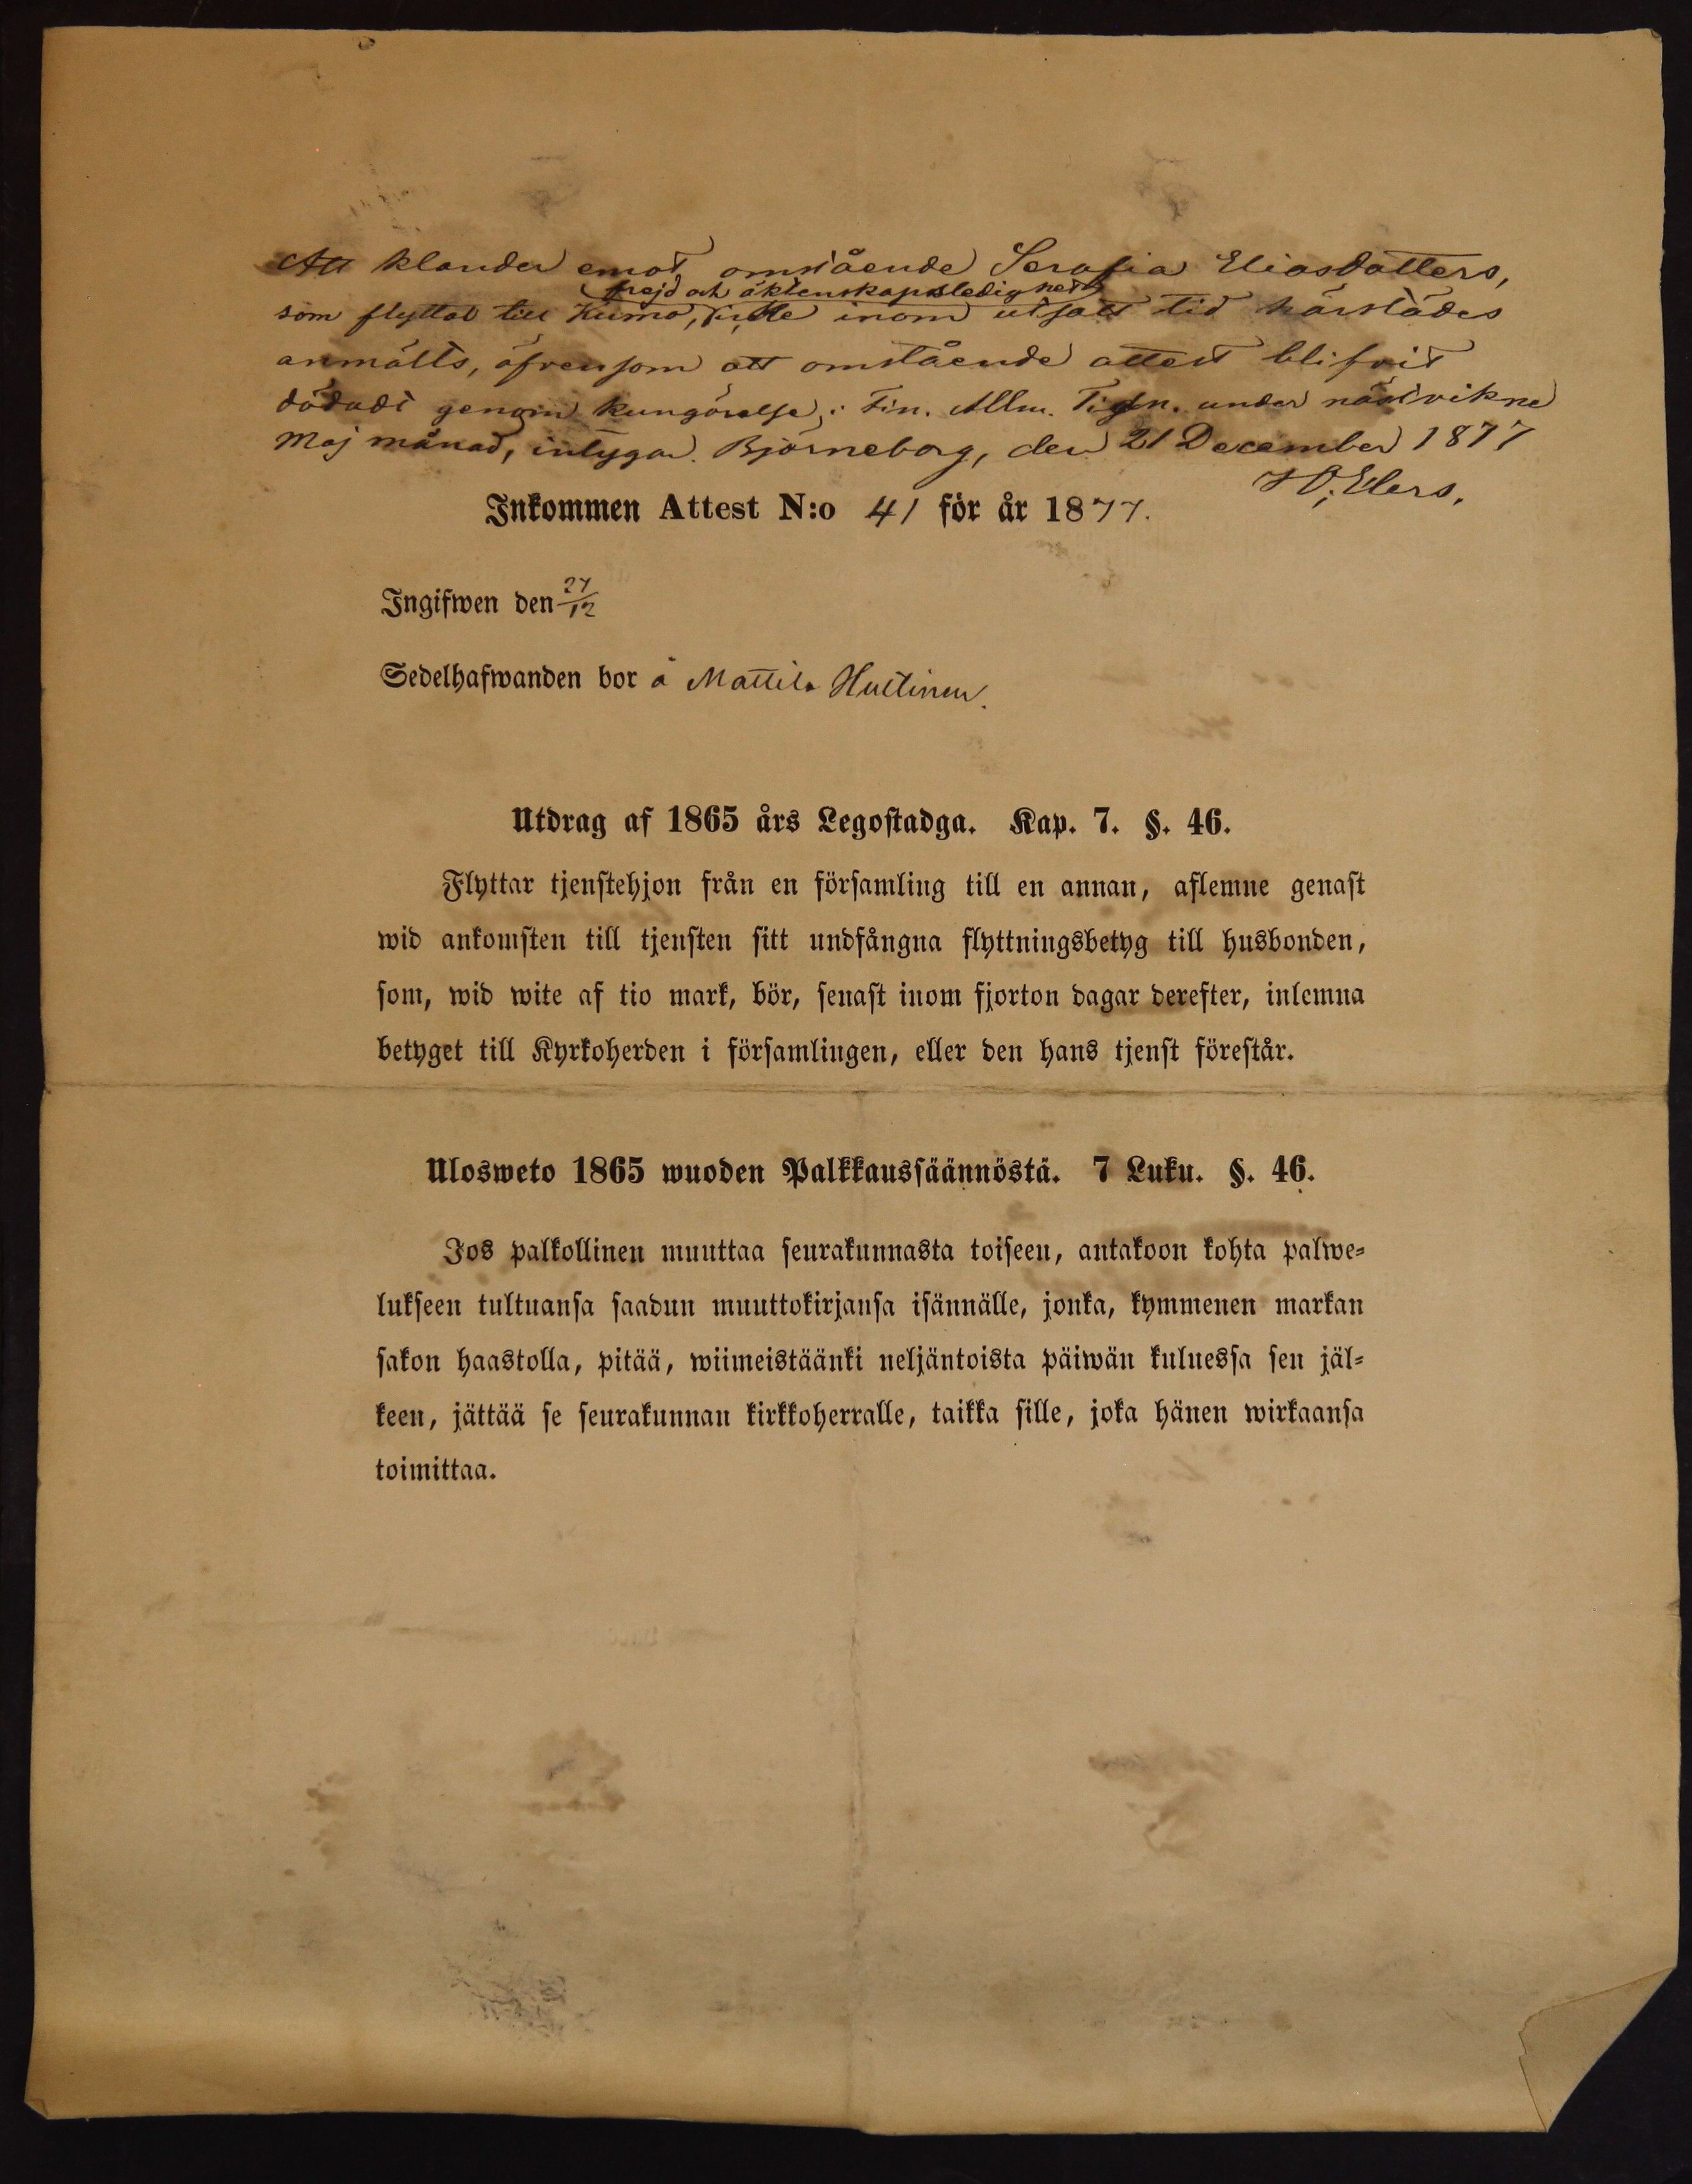 Att klander emot omstående Serafia Eliasdotters,
frejd och äktenskapsledighet
som flyttat till Kumo, icke inom utsatt tid härstädes
anmälts, äfvensom att omstående attest blifvit
dödadt genom kungörelse i Fin. Allm. Tidn. under nästvikne
Maj månad, intygar. Björneborg, den 21 December 1877
Inkommen Attest N:o 41 för år 1877.
Ingifwen den 27/12
Sedelhafwanden bor å Mattila Huttinen.
Utdrag af 1865 års Legostadga. Kap. 7. §. 46.
Flyttar tjenstehjon från en församling till en annan, aflemne genast
wid ankomsten till tjensten sitt undfångna flyttningsbetyg till husbonden,
som, wid wite af tio mark, bör, senast inom fjorton dagar derefter, inlemna
betyget till Kyrkoherden i församlingen, eller den hans tjenst förestår.
Ulosweto 1865 wuoden Palkkaussäännöstä. 7 Luku. §. 46.
Jos palkollinen muuttaa seurakunnasta toiseen, antakoon kohta palwe-
lukseen tultuansa saadun muuttokirjansa isännälle, jonka, kymmenen markan
sakon haastolla, pitää, wiimeistäänki neljäntoista päiwän kuluessa sen jäl-
keen, jättää se seurakunnan kirkkoherralle, taikka sille, joka hänen wirkaansa
toimittaa.